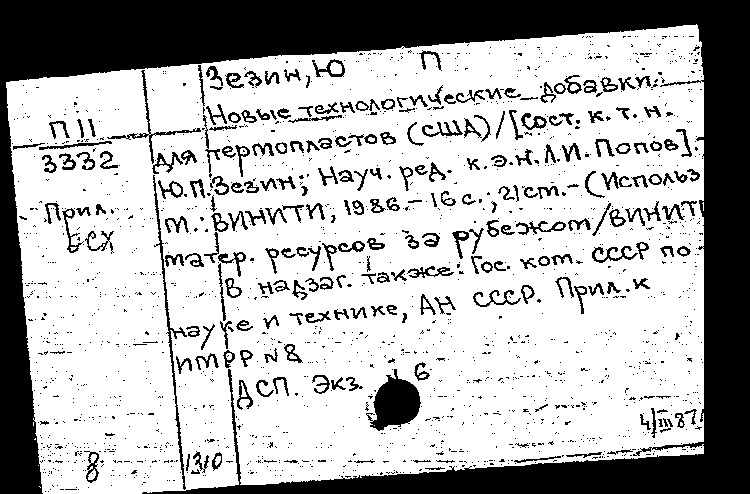 Зезин, Ю П
Новые технологические добавки
П II
3332
для термопластов (США)/[Сост. к.т.н.
Ю.П.Зезин; Науч. ред. к.э.н.Л.И.Попов].-
Прил.
БСХ
М.: ВИНИТИ, 1986.- 16 с.; 21 см.- (Использ
матер. ресурсов за рубежом/ВИНИТИ
В надзаг. также: Гос. ком. СССР по
науке и технике, АН СССР. Прил.к
ИМРР N 8
ДСП. Экз. N 6
4/III 87
8
1310